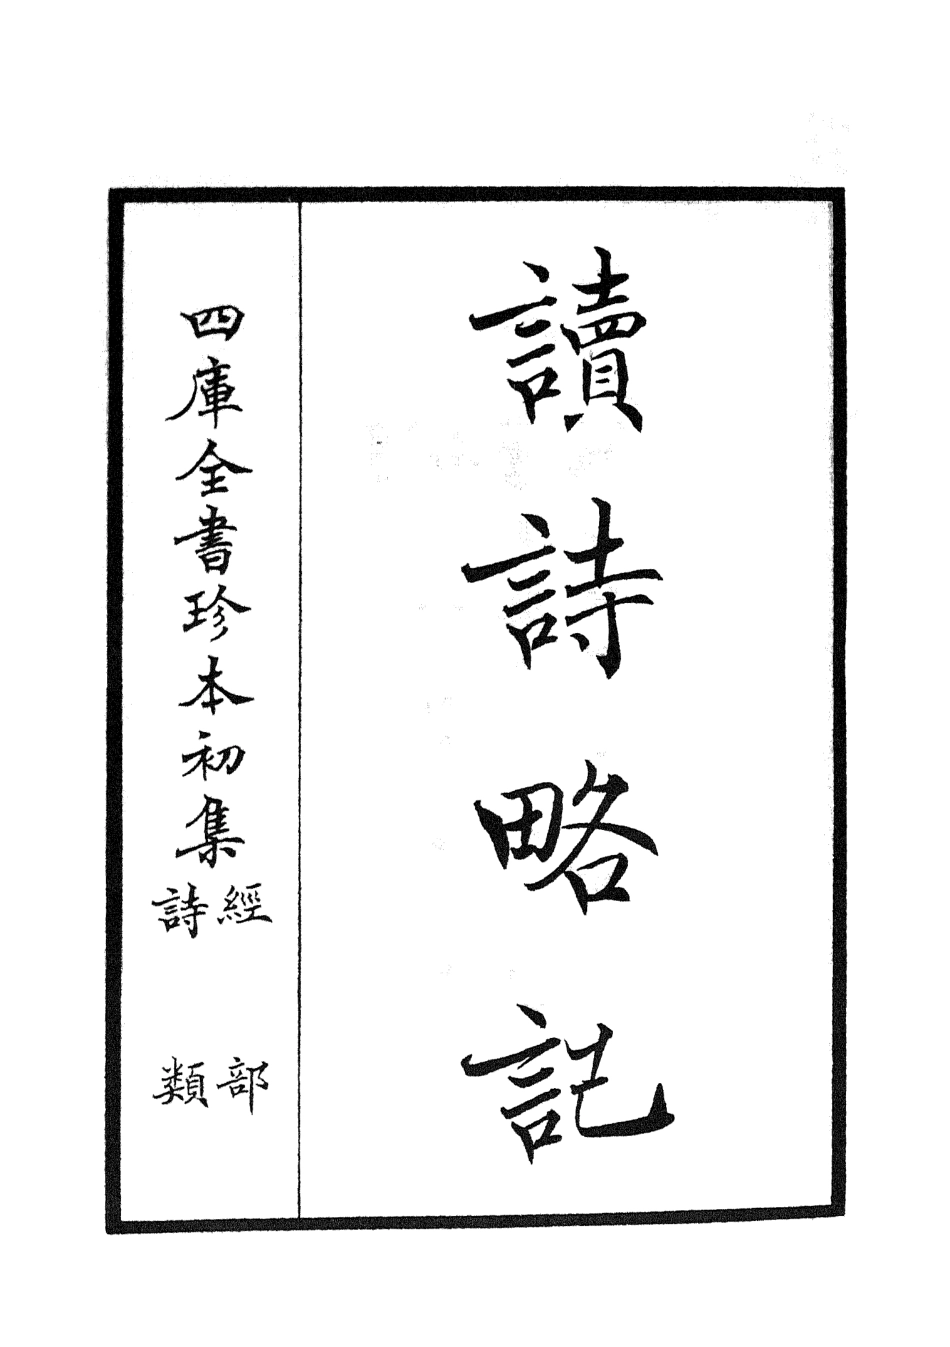 讀詩略記
四庫全書珍本初集
經部
詩類